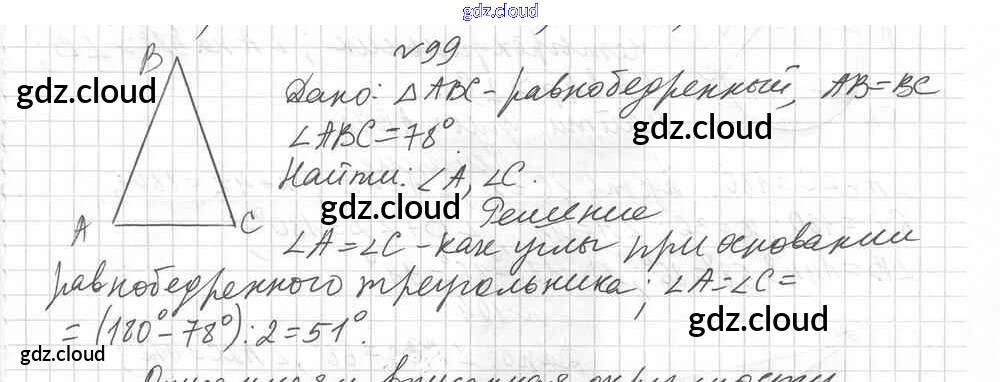 gdz.cloud
№99
B
gdz.cloud
Дано: △ABC - равнобедренный, AB=BC
∠ABC=78°.
gdz.cloud
Найти: ∠A, ∠C.
gdz.cloud
Решение
A
C
∠A=∠C - как углы при основании
равнобедренного треугольника; ∠A=∠C=
=(180°-78°):2=51°.
gdz.cloud
gdz.cloud